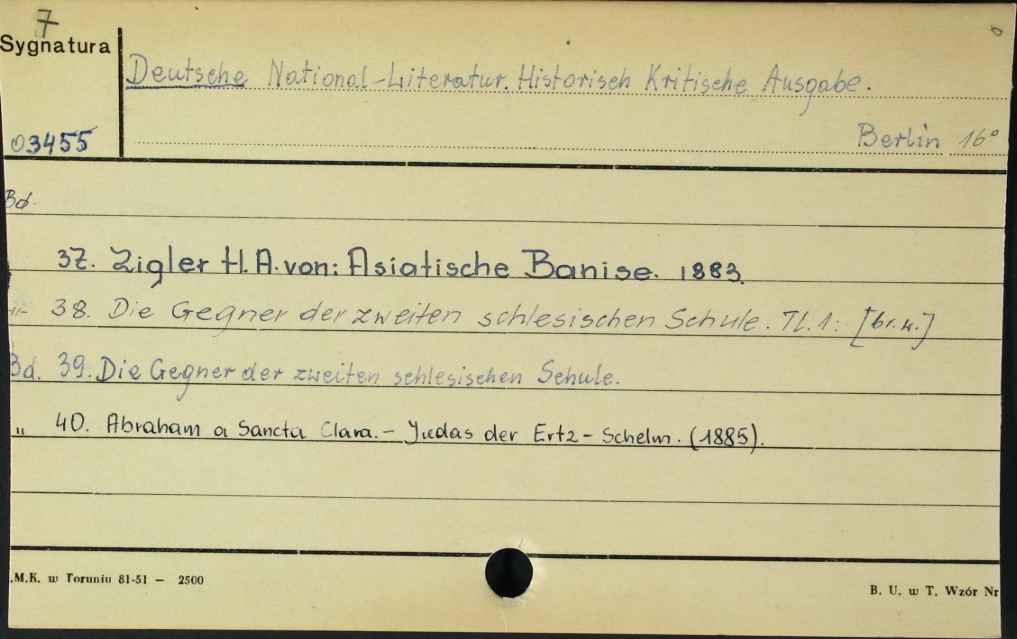 7
Sygnatura
Deutsche National-Literatur. Historisch Kritische Ausgabe.
03455
Berlin 16°
Bd.
37. Zigler H. A. von: Asiatische Banise. 1883.
38. Die Gegner der zweiten schlesischen Schule. Tl. 1: [br.w.]
Bd. 39. Die Gegner der zweiten schlesischen Schule.
„ 40. Abraham a Sancta Clara. – Judas der Ertz – Schelm. (1885).
.M.K. w Toruniu 81-51 — 2500
B. U. w T. Wzór Nr